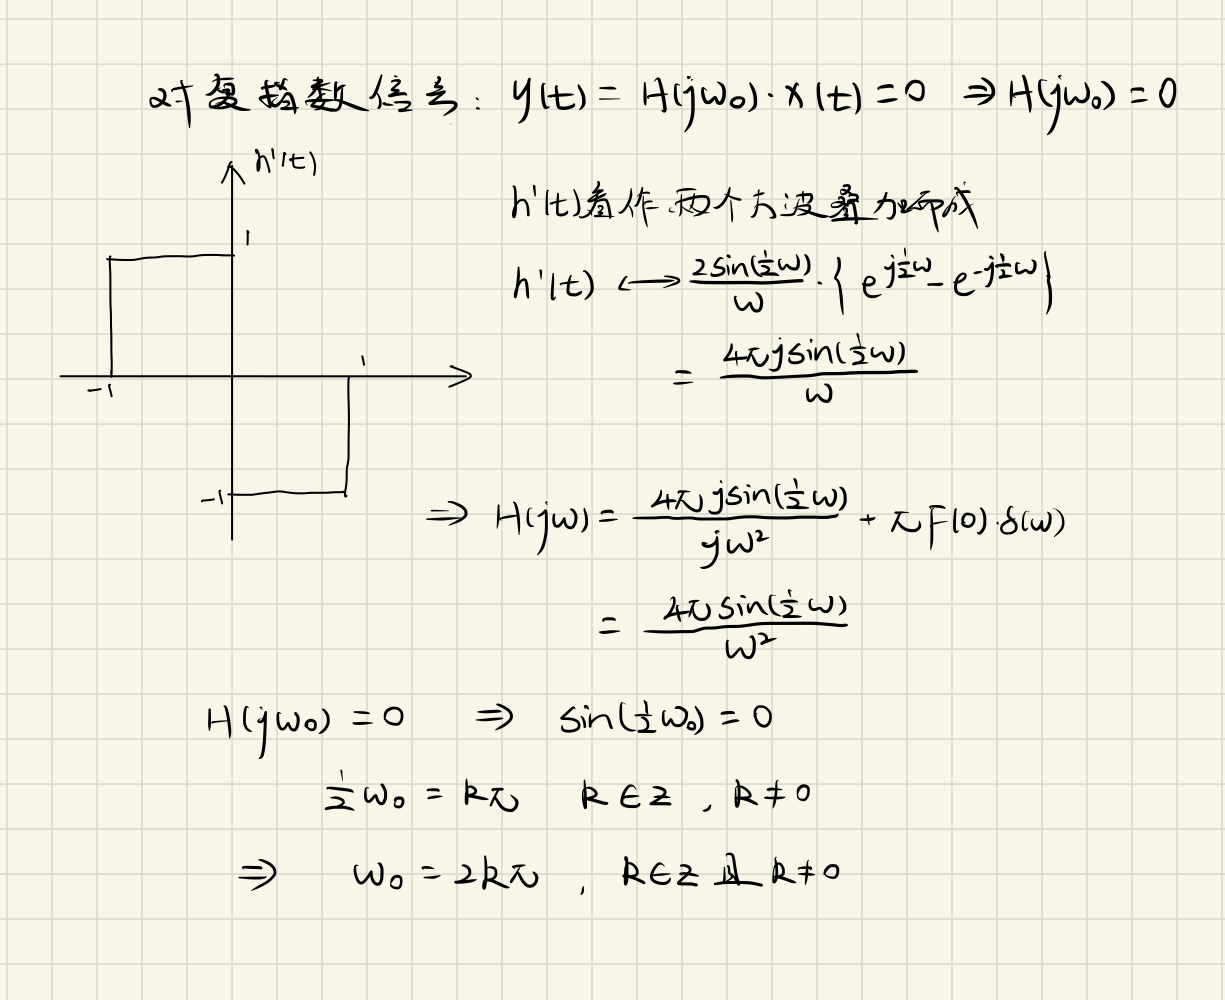 对复指数信号: y(t) = H(jω₀)·x(t) = 0 ⇒ H(jω₀) = 0
h'(t)
1
-1
1
-1
h'(t)看作两个方波叠加而成
h'(t) ⟷ 2sin(½ω)/ω · { e^{j½ω} - e^{-j½ω} }
= 4πjsin(½ω)/ω
⇒ H(jω) = 4πjsin(½ω)/jω² + πF(0)·δ(ω)
= 4πsin(½ω)/ω²
H(jω₀) = 0 ⇒ sin(½ω₀) = 0
½ω₀ = kπ k∈z , k≠0
⇒ ω₀ = 2kπ , k∈z 且 k≠0